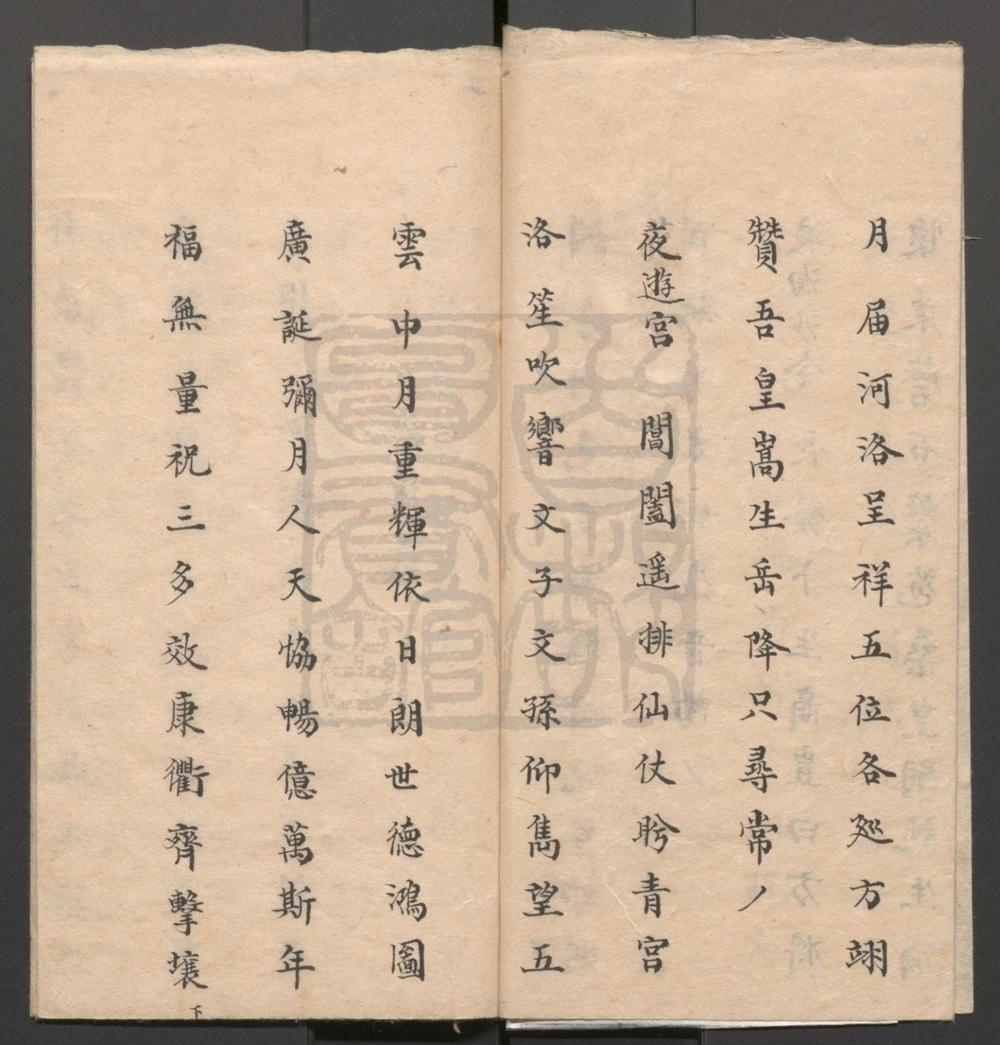 月届河洛呈祥五位各廵方翊
贊吾皇嵩生岳降只尋常ノ
夜遊宮　閶闔遥排仙仗盻青宮
洛笙吹響文子文孫仰雋望五
雲中月重輝依日朗世德鴻圖
廣誕彌月人天恊暢億萬斯年
福無量祝三多效康衢齊擊壤
下